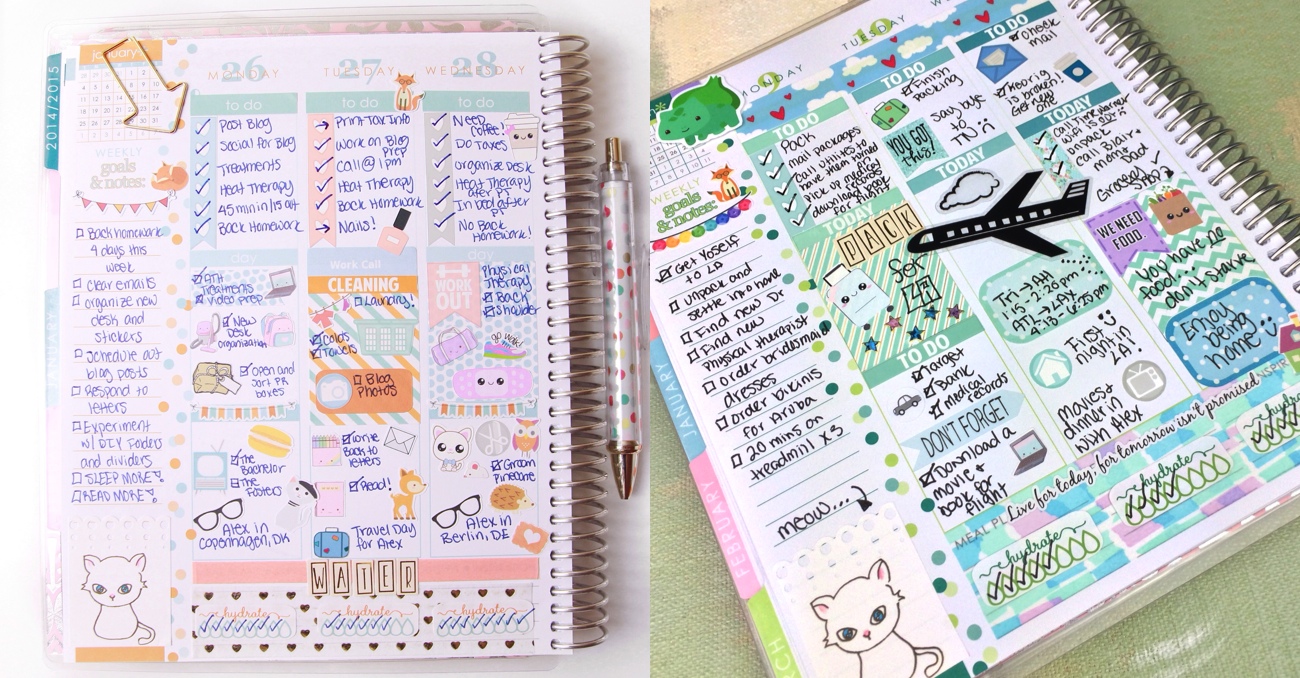 january
2014/2015
JANUARY
WEEKLY
goals
& notes:
Back homework
4 days this
week
clear emails
organize new
desk and
stickers
schedule out
blog posts
Respond to
letters
Experiment
w/ DIY Folders
and dividers
SLEEP MORE!
READ MORE!
26
MONDAY
to do
Post Blog
Social for Blog
Treatments
Heat Therapy
45 min in/15 out
Back Homework
day
Treatments
video prep
New
Desk
organization
open and
sort PR
boxes
The
Bachelor
The
Fosters
Alex in
Copenhagen, DK
27
TUESDAY
to do
Print Tax Info
Work on Blog
Prep
Call @ 1pm
Heat Therapy
Back Homework
Nails!
Work Call
CLEANING
Laundry!
Colds
Towels
Blog
Photos
Back to
letters
Read!
Travel Day
for Alex
28
WEDNESDAY
to do
Need
Coffee!
Do Taxes
organize Desk
Heat Therapy
after PT
In bed after
PT
No Back
Homework!
day
WORK
OUT
Physical
Therapy
Back
Shoulder
go walk!
Groom
Pinecone
Alex in
Berlin, DE
WATER
hydrate
hydrate
hydrate
JANUARY
FEBRUARY
WEEKLY
goals
& notes:
Get Yoself
to LA
unpack and
settle into home
Find new Dr
Find new
Physical therapist
order bridesmaid
dresses
order bikinis
for Aruba
20 mins on
treadmill x3
meow...
MONDAY
TO DO
Pack
mail packages
call utilities to
have them turned
pick up medical
records
download book
for flight
TODAY
PACK
TO DO
Target
Bank
Medical
records
DON'T FORGET
Download a
movie +
book for
flight
10
TUESDAY
TO DO
Finish
packing
YOU GOT
this!
Say bye
to
TN
TODAY
Tri → Atl
ATL → LAX
First
night in
LA!
Movies +
dinner in
with Alex
TO DO
check
mail
is broken!
Get new
one
TODAY
call Time Warner
unpack
call Blair +
mom +
Dad
WE NEED
FOOD
You have no
food don't starve
Enjoy
being
home
MEAL PL
Live for today, for tomorrow isn't promised
INSPIR
hydrate
hydrate
hydra